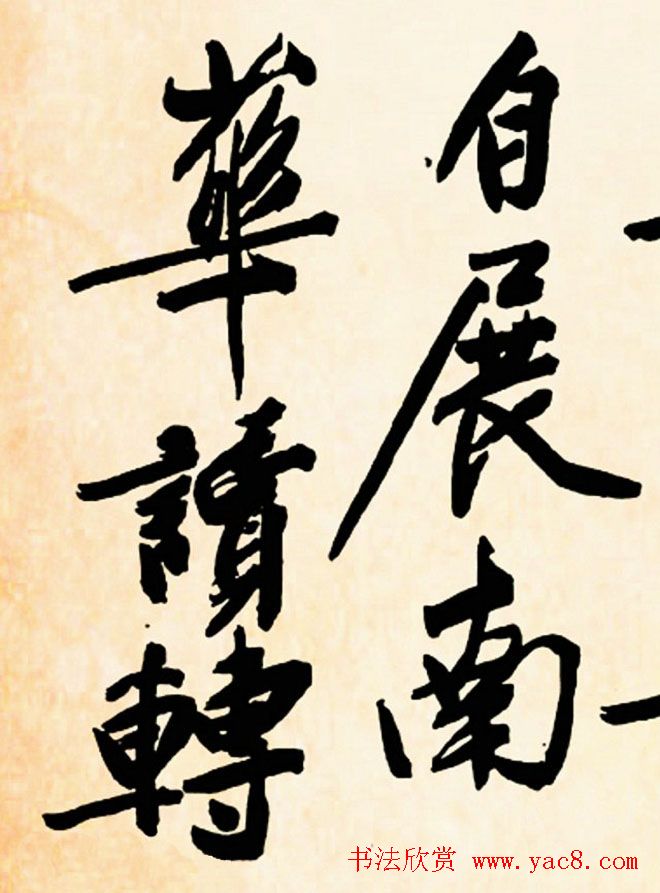 自展南
華讀轉
书法欣赏 www.yac8.com